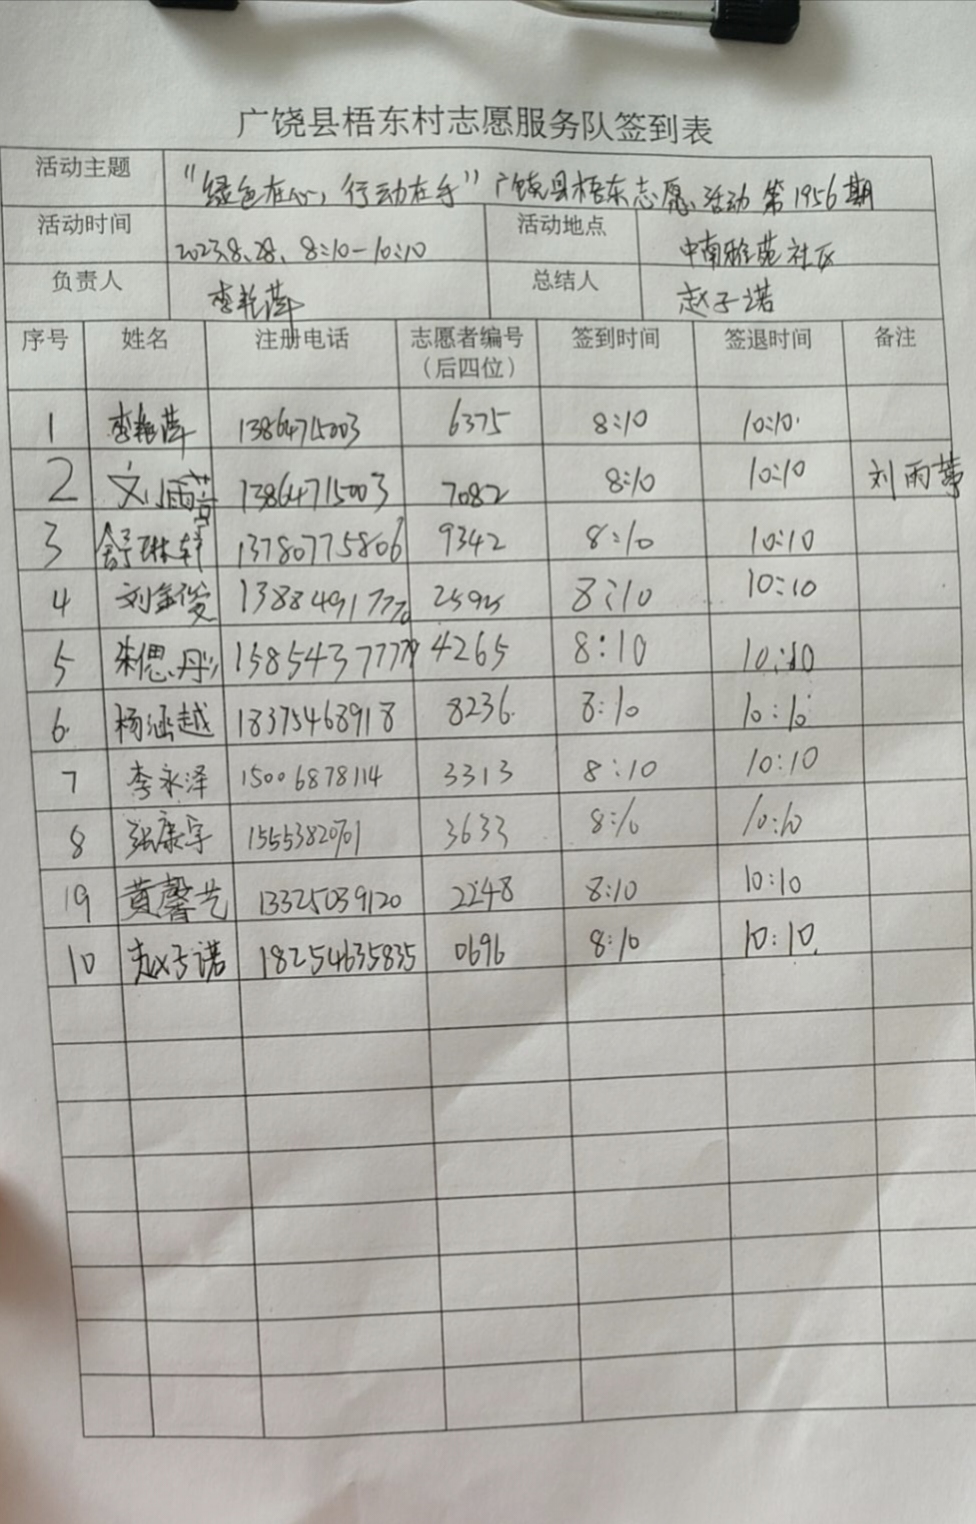 广饶县梧东村志愿服务队签到表
活动主题 "绿色在心,行动在手"广饶县梧东志愿活动第1956期
活动时间 2023.8.28、8:10-10:10 活动地点 中南雅苑社区
负责人 李艳萍 总结人 赵子诺
序号 姓名 注册电话 志愿者编号(后四位) 签到时间 签退时间 备注
1 李艳萍 13864715003 6375 8:10 10:10
2 刘雨 13864715003 7082 8:10 10:10 刘雨
3 舒琳轩 13780775806 9342 8:10 10:10
4 刘金俊 8:10 10:10
5 朱偲彤 4265 8:10 10:10
6 杨涵越 18375468918 8236 8:10 10:10
7 李永泽 15006878114 3313 8:10 10:10
8 张康宇 3633 8:10 10:10
19 黄馨艺 13325039120 2248 8:10 10:10
10 赵子诺 18254635835 0696 8:10 10:10